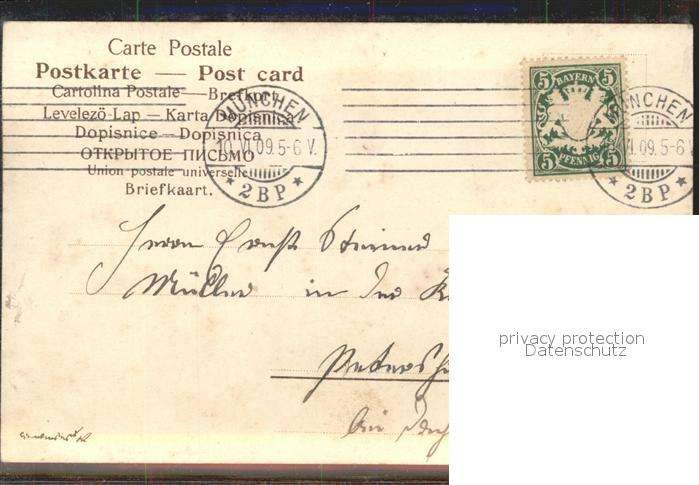 Carte Postale
Postkarte — Post card
Cartolina Postale — Brefkort
Levelező-Lap — Karta Dopisnica
Dopisnice — Dopisnica
ОТКРЫТОЕ ПИСЬМО
Union postale universelle
Briefkaart.
MÜNCHEN
10.VI.09.5-6 V.
★ 2BP ★
5 BAYERN 5
5 PFENNIG 5
MÜNCHEN
VI.09.5-6
★ 2BP ★
Herrn Ernst
Müller in der
Petersh
bei Dach
privacy protection
Datenschutz